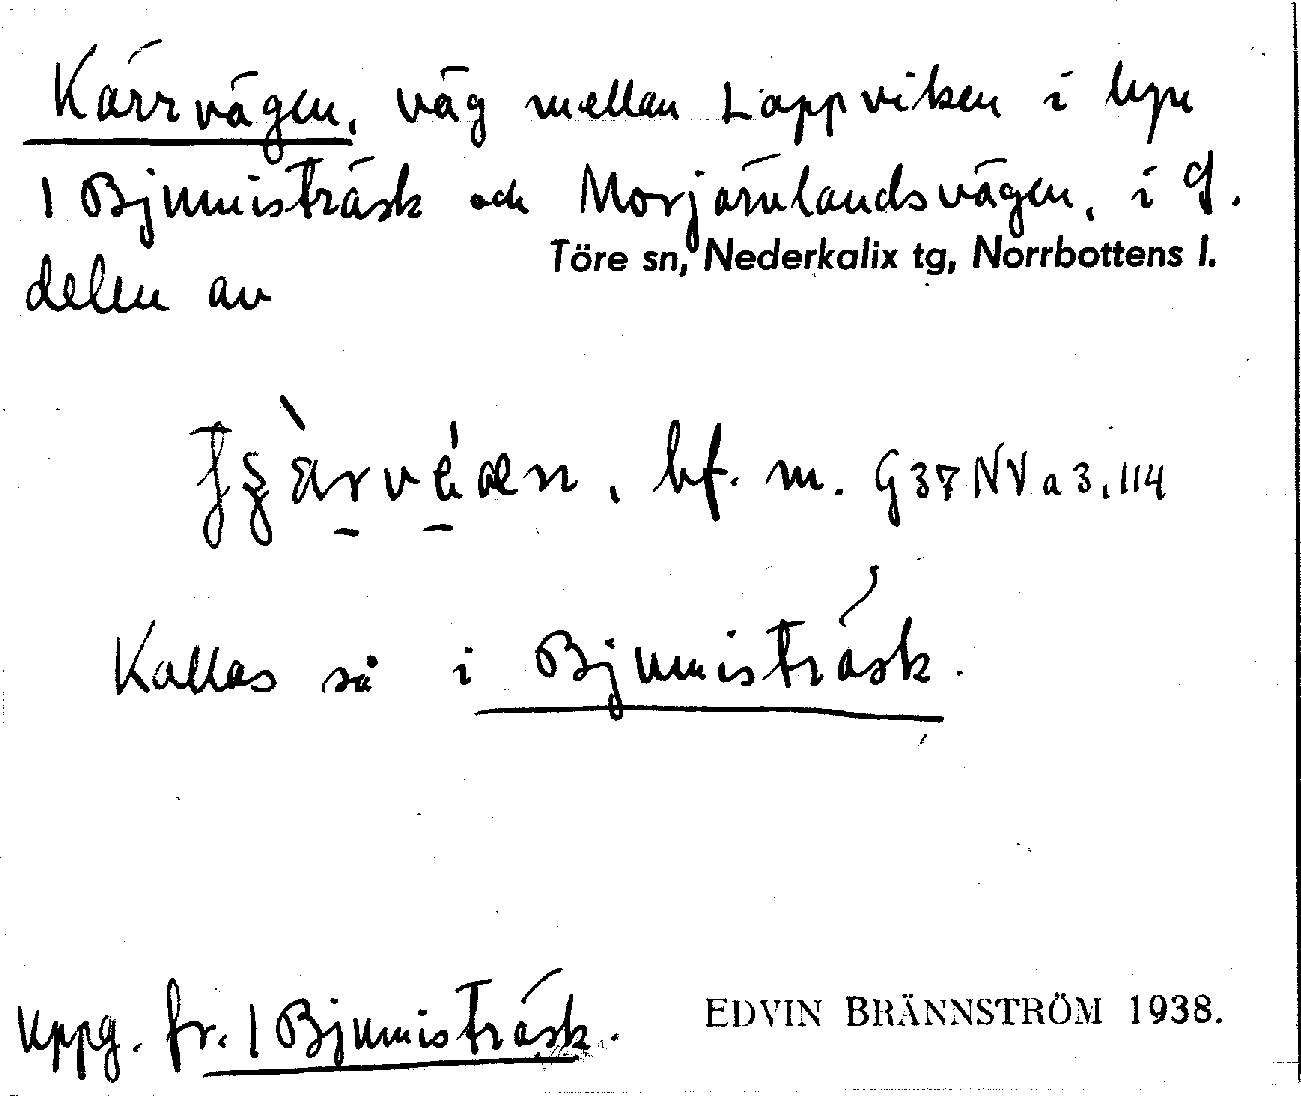 Kärrvägen, väg mellan Lappviken i byn
1 Bjumisträsk och Morjärnlandsvägen, i S.
Töre sn, Nederkalix tg, Norrbottens l.
delen av
bf. m. G37 NV a 3, 114
Kallas så i Bjumisträsk.
Uppg. fr. 1 Bjumisträsk.
EDVIN BRÄNNSTRÖM 1938.